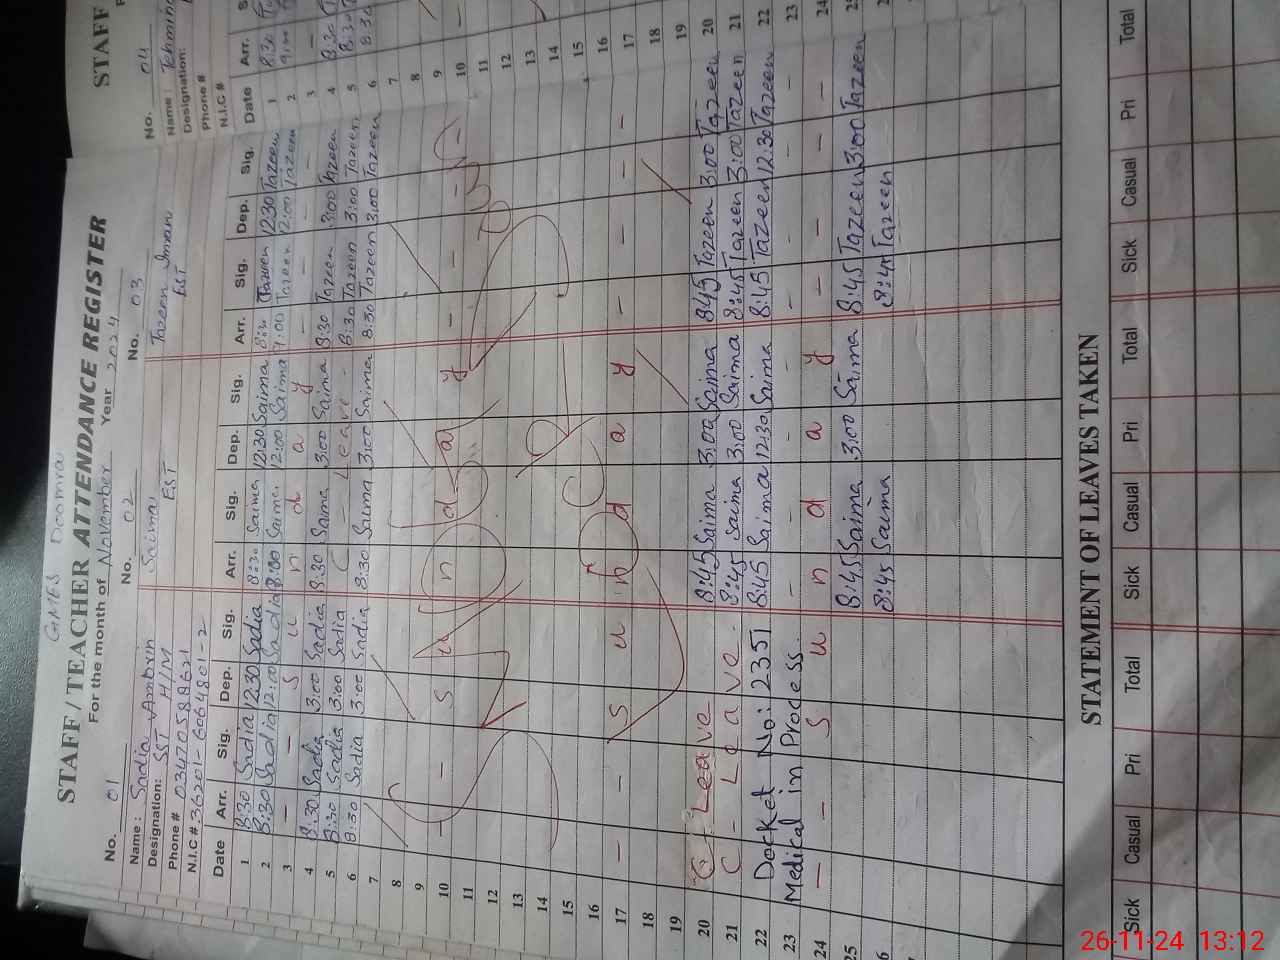 STAFF / TEACHER ATTENDANCE REGISTER
For the month of November Year 2024
No. 01 No. 02 No. 03
Name: Sadia Ambrin Saima Tazeen Imran
Designation: SST H/M EST EST
Phone # 03470588621
N.I.C #
Date Arr. Sig. Dep. Sig. Arr. Sig. Dep. Sig. Arr. Sig. Dep. Sig.
1 8:30 Sadia 12:30 Sadia 8:30 Saima 12:30 Saima Tazeen 12:30 Tazeen
2 8:30 Sadia 12:00 Sadia 8:00 Saima 12:00 Saima Tazeen 12:00 Tazeen
3 — — S u n d a y — — —
4 8:30 Sadia 3:00 Sadia 8:30 Saima 3:00 Saima 8:30 Tazeen 3:00 Tazeen
5 8:30 Sadia 3:00 Sadia C - Leave - 8:30 Tazeen 3:00 Tazeen
6 8:30 Sadia 3:00 Sadia 8:30 Saima 3:00 Saima 8:30 Tazeen 3:00 Tazeen
7
8
9
10 — — S u n d a y — — —
11
12
13
14
15
16
17 — — S u n d a y — — —
18
19
20 C. Leave 8:45 Saima 3:00 Saima 8:45 Tazeen 3:00 Tazeen
21 C - Leave. 8:45 Saima 3:00 Saima 8:45 Tazeen 3:00 Tazeen
22 Docket No: 2351 8:45 Saima 12:30 Saima 8:45 Tazeen 12:30 Tazeen
23 Medical in Process. - - - - - - - -
24 — — S u n d a y — — — —
25 8:45 Saima 3:00 Saima 8:45 Tazeen 3:00 Tazeen
6 8:45 Saima 8:45 Tazeen
STATEMENT OF LEAVES TAKEN
Sick Casual Pri Total Sick Casual Pri Total Sick Casual Pri Total
STAFF
No. 04
Name:
Designation:
Phone #
N.I.C #
Date Arr.
1 8:30
2
3 —
4 8:30
5 8:30
6 8:30
7
8
9
10
11
12
13
14
15
16
17
18
19
20
21
22
23
24
26-11-24 13:12